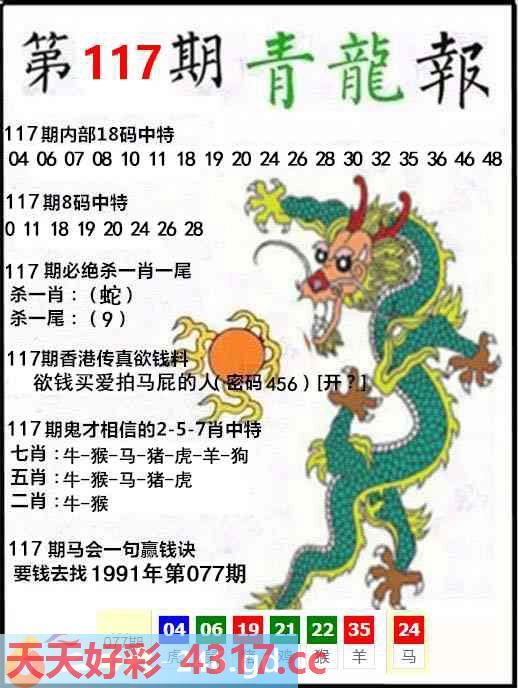 第117期青龍報
117期内部18码中特
04 06 07 08 10 11 18 19 20 24 26 28 30 32 35 36 46 48
117期8码中特
0 11 18 19 20 24 26 28
117期必绝杀一肖一尾
杀一肖：（蛇）
杀一尾：（9）
117期香港传真欲钱料
欲钱买爱拍马屁的人(密码456)[开?]
117期鬼才相信的2-5-7肖中特
七肖：牛-猴-马-猪-虎-羊-狗
五肖：牛-猴-马-猪-虎
二肖：牛-猴
117期马会一句赢钱诀
要钱去找1991年第077期
077期 04 06 19 21 22 35 24
虎 鸡 猴 羊 马
天天好彩 4317.cc